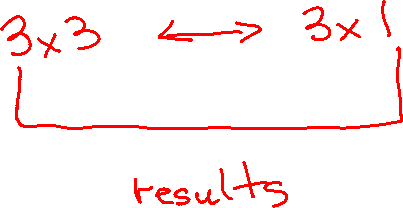 3x3 ↔ 3x1
results